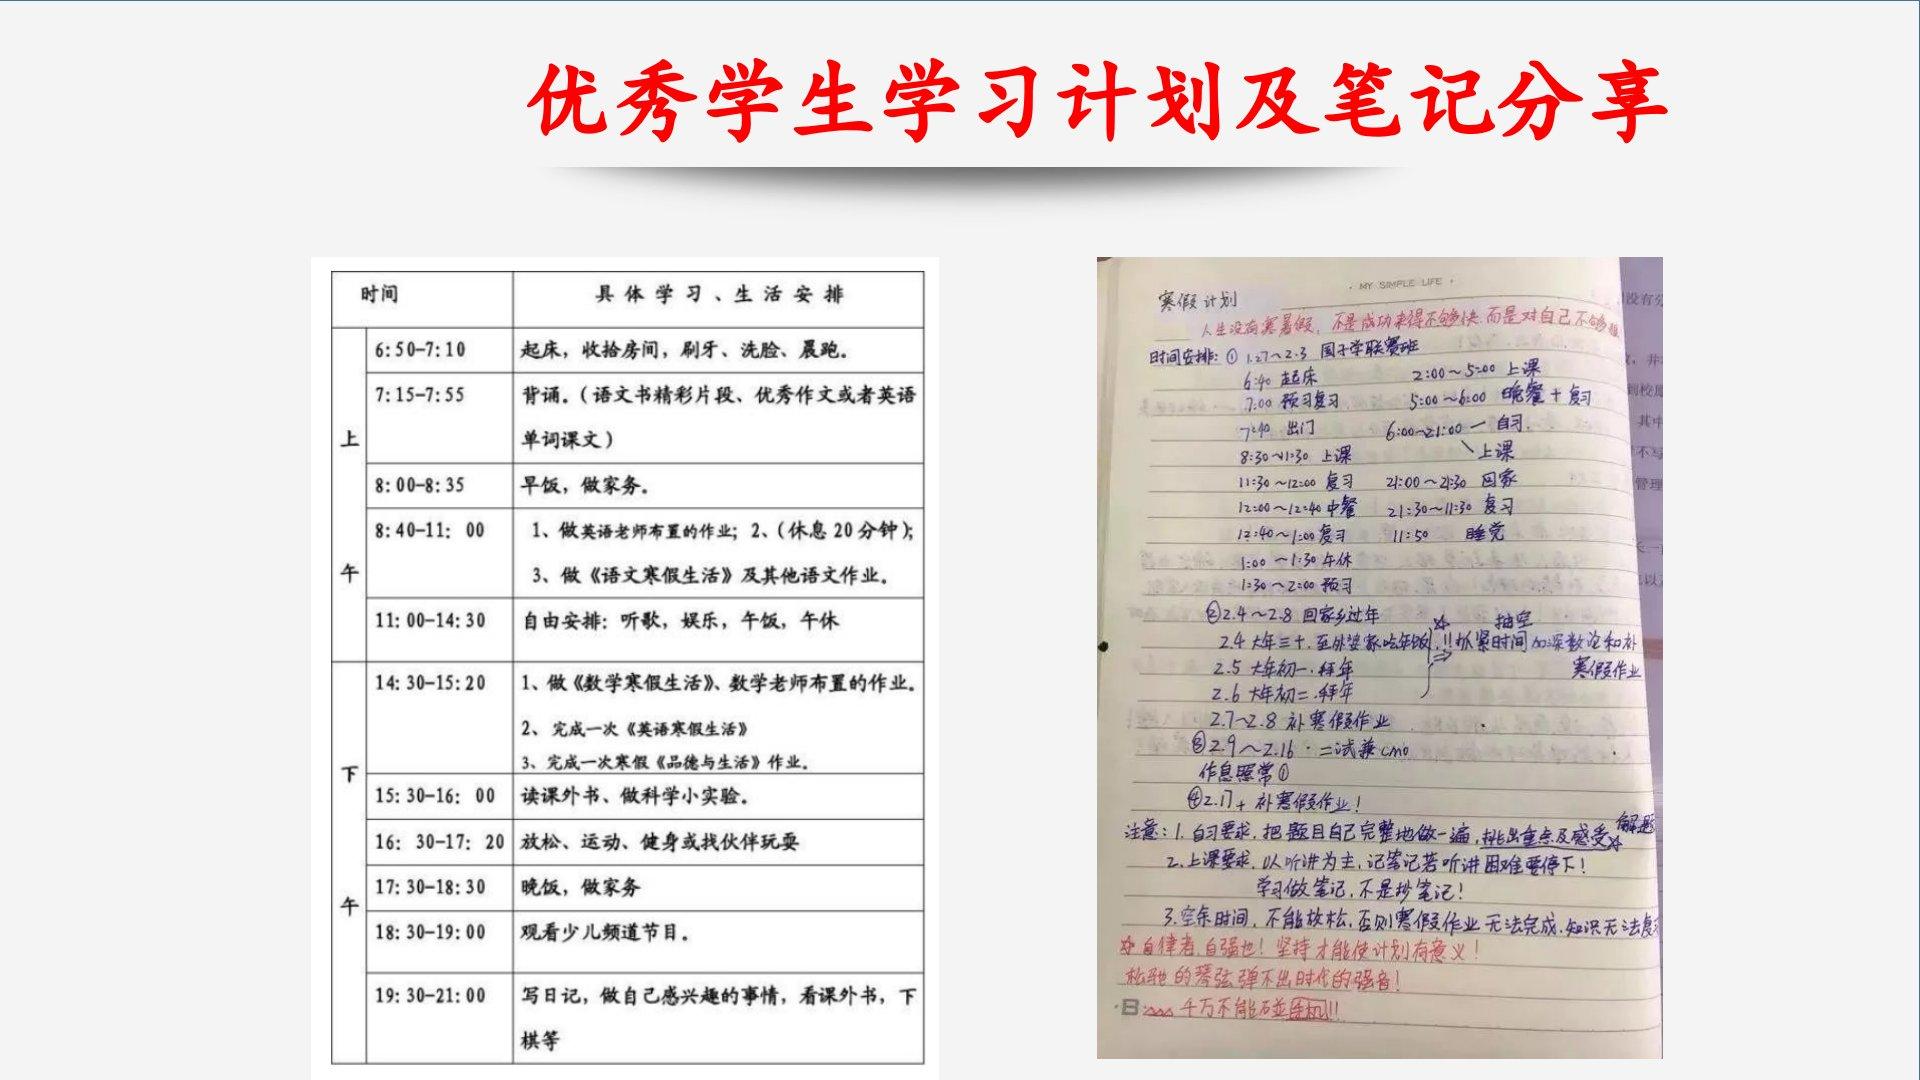 优秀学生学习计划及笔记分享
时间 具体学习、生活安排
上午
6:50-7:10 起床，收拾房间，刷牙、洗脸、晨跑。
7:15-7:55 背诵。（语文书精彩片段、优秀作文或者英语
单词课文）
8:00-8:35 早饭，做家务。
8:40-11：00 1、做英语老师布置的作业；2、（休息20分钟）；
3、做《语文寒假生活》及其他语文作业。
11:00-14:30 自由安排：听歌，娱乐，午饭，午休
下午
14:30-15:20 1、做《数学寒假生活》、数学老师布置的作业。
2、完成一次《英语寒假生活》
3、完成一次寒假《品德与生活》作业。
15:30-16：00 读课外书、做科学小实验。
16：30-17：20 放松、运动、健身或找伙伴玩耍
17:30-18:30 晚饭，做家务
18:30-19:00 观看少儿频道节目。
19:30-21:00 写日记，做自己感兴趣的事情，看课外书，下
棋等
MY SIMPLE LIFE
寒假计划
人生没有寒暑假，不是成功来得不够快，而是对自己不够狠
时间安排：① 1.27～2.3 国子学联赛班
6:40 起床 2:00～5:00 上课
7:00 预习复习 5:00～6:00 晚餐+复习
7:40 出门 6:00～21:00 自习
上课
8:30～11:30 上课
11:30～12:00 复习 21:00～21:30 回家
12:00～12:40 中餐 21:30～11:30 复习
12:40～1:00 复习 11:50 睡觉
1:00～1:30 午休
1:30～2:00 预习
②2.4～2.8 回家乡过年
抽空
2.4 大年三十，至外婆家吃年饭 !!抓紧时间加深数论和补
2.5 大年初一，拜年 寒假作业
2.6 大年初二，拜年
2.7～2.8 补寒假作业
③2.9～2.16 二试兼CMO
作息照常①
④2.17+ 补寒假作业！
注意：1.自习要求，把题目自己完整地做一遍，挑出重点及解题感受
2.上课要求，以听讲为主，记笔记若听讲困难要停下！
学习做笔记，不是抄笔记！
3.空余时间，不能放松，否则寒假作业无法完成，知识无法复习
☆自律者，自强也！坚持才能使计划有意义！
松弛的琴弦弹不出时代的强音！
千万不能碰手机!!